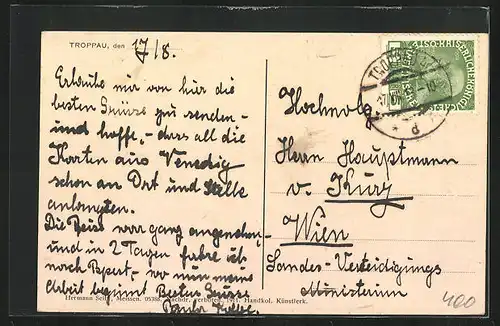 TROPPAU, den 17/8.
Erlaube mir von hier die
besten Grüsse zu senden -
und hoffe, - dass all die
Karten aus Venedig
schon an Ort und Stelle
anlangten.
Die Reise war ganz angenehm, -
und in 2 Tagen fahre ich
nach - wo nun meine
Arbeit beginnt Beste Grüsse
Hermann Seibt, Meissen. Nachdr. verboten. Handkol. Künstlerk.
Hochwolg.
Herrn Hauptmann
v. Kury
Wien
Landes-Verteidigungs
Ministerium
400